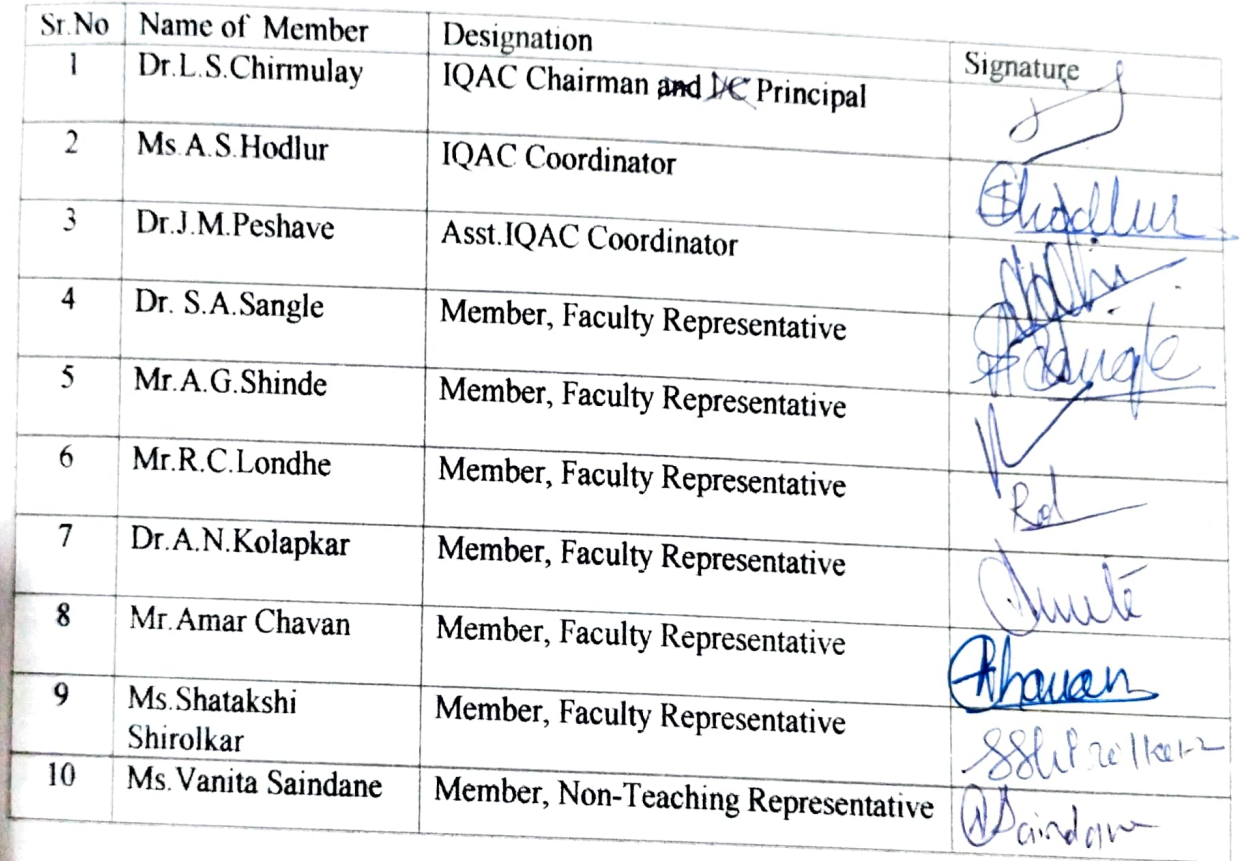 Sr.No Name of Member Designation Signature
1 Dr.L.S.Chirmulay IQAC Chairman and I/C Principal
2 Ms.A.S.Hodlur IQAC Coordinator Hodlur
3 Dr.J.M.Peshave Asst.IQAC Coordinator
4 Dr. S.A.Sangle Member, Faculty Representative Sangle
5 Mr.A.G.Shinde Member, Faculty Representative
6 Mr.R.C.Londhe Member, Faculty Representative
7 Dr.A.N.Kolapkar Member, Faculty Representative
8 Mr.Amar Chavan Member, Faculty Representative Chavan
9 Ms.Shatakshi Member, Faculty Representative
Shirolkar
10 Ms.Vanita Saindane Member, Non-Teaching Representative